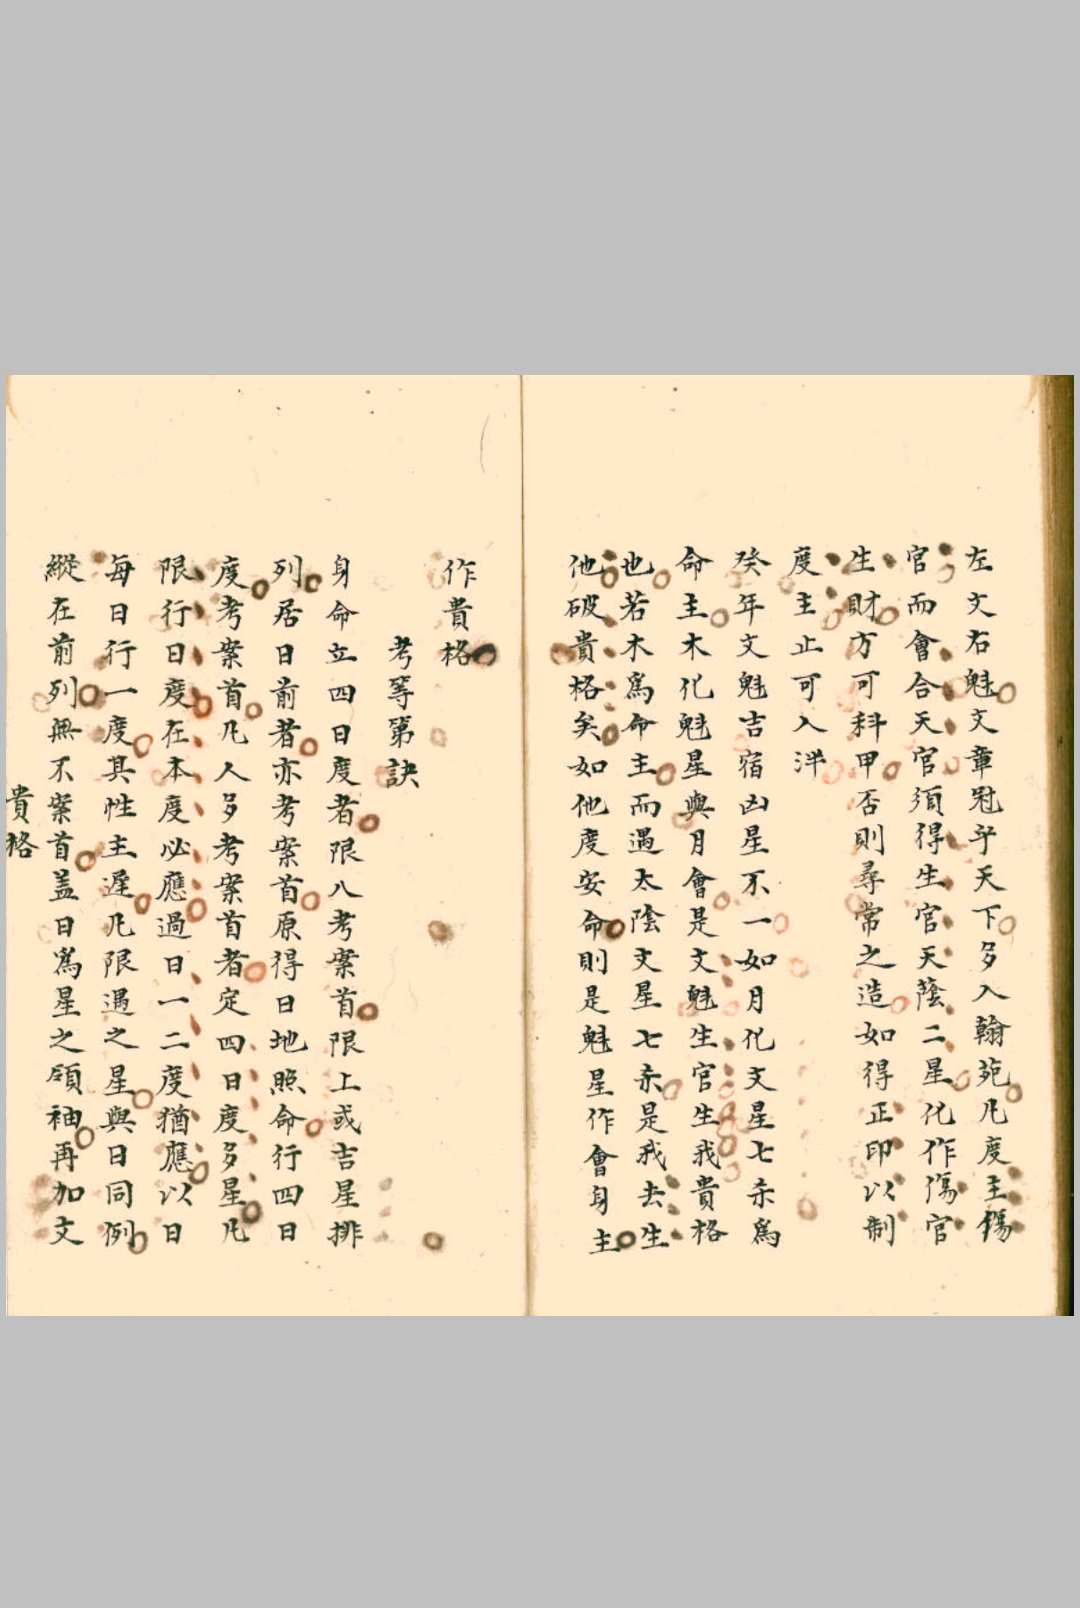 左文右魁文章冠乎天下多入翰苑凢度主傷
官而會合天官須得生官天蔭二星化作傷官
生財方可科甲否則尋常之造如得正印以制
度主止可入泮
癸年文魁吉宿凶星不一如月化文星七𠇍為
命主木化魁星與月會是文魁生官生我貴格
也若木為命主而遇太陰文星七𠇍是我去生
他破貴格矣如他度安命則是魁星作會身主
作貴格
考等第訣
身命立四日度者限八考案首限上或吉星排
列居日前者亦考案首原得日地照命行四日
度考案首凢人多考案首者定四日度多星凢
限行日度在本度必應過日一二度猶應以日
每日行一度其性主遲凢限遇之星與日同例
縱在前列無不案首盖日為星之領袖再加文
貴格